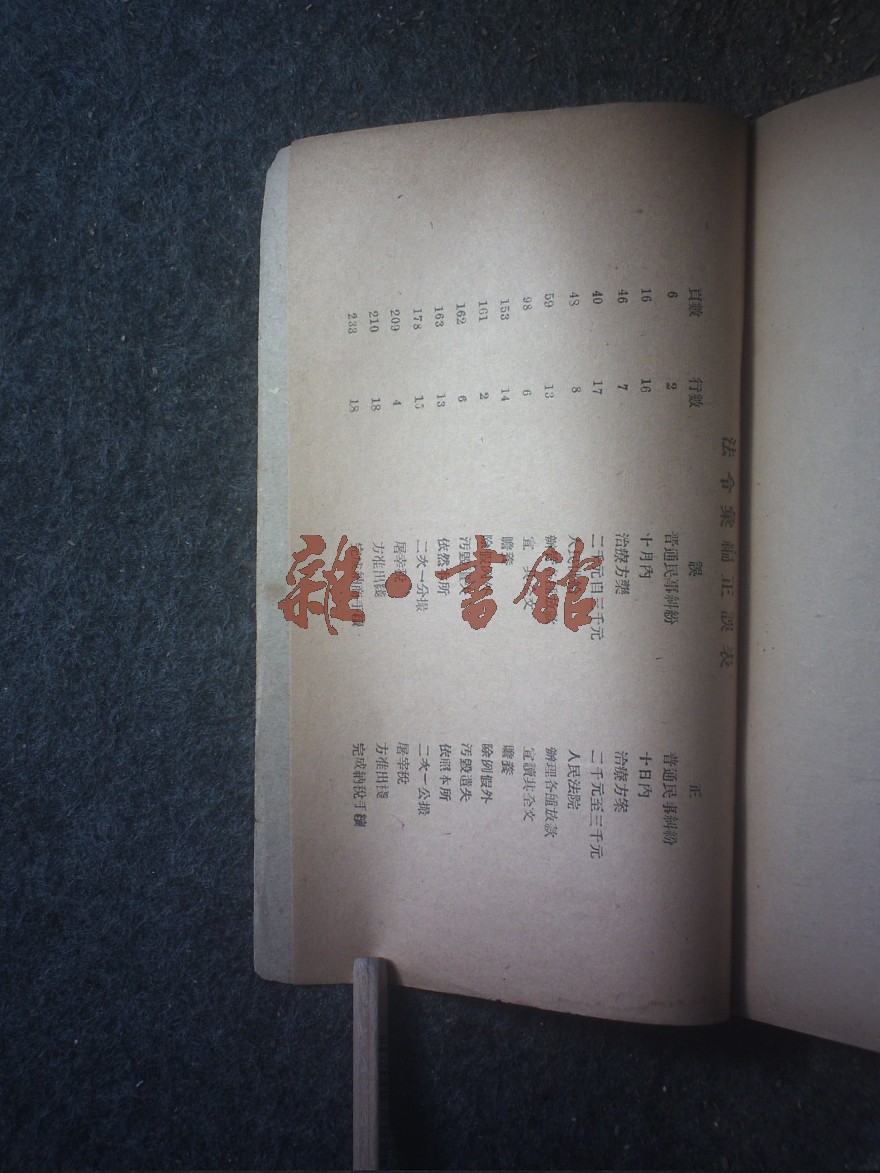 法令彙編正誤表
頁數 行數 誤 正
6 2 晋通民事糾紛 普通民事糾紛
16 16 十月內 十日內
46 7 治療方藥 治療方案
40 17 二千元旧三千元 二千元至三千元
48 8 人民 人民法院
59 13 辦理 辦理各種放款
98 6 宜 文 宣讀其全文
153 14 瞻養 贍養
161 2 除例假外
162 6 汚毀 汚毀遺失
163 13 依然 所 依照本所
178 15 二次一分撮 二次一公撮
209 4 屠宰 屠宰稅
210 18 方准出錢 方准出棧
233 18 完成納稅手續
雜·書館